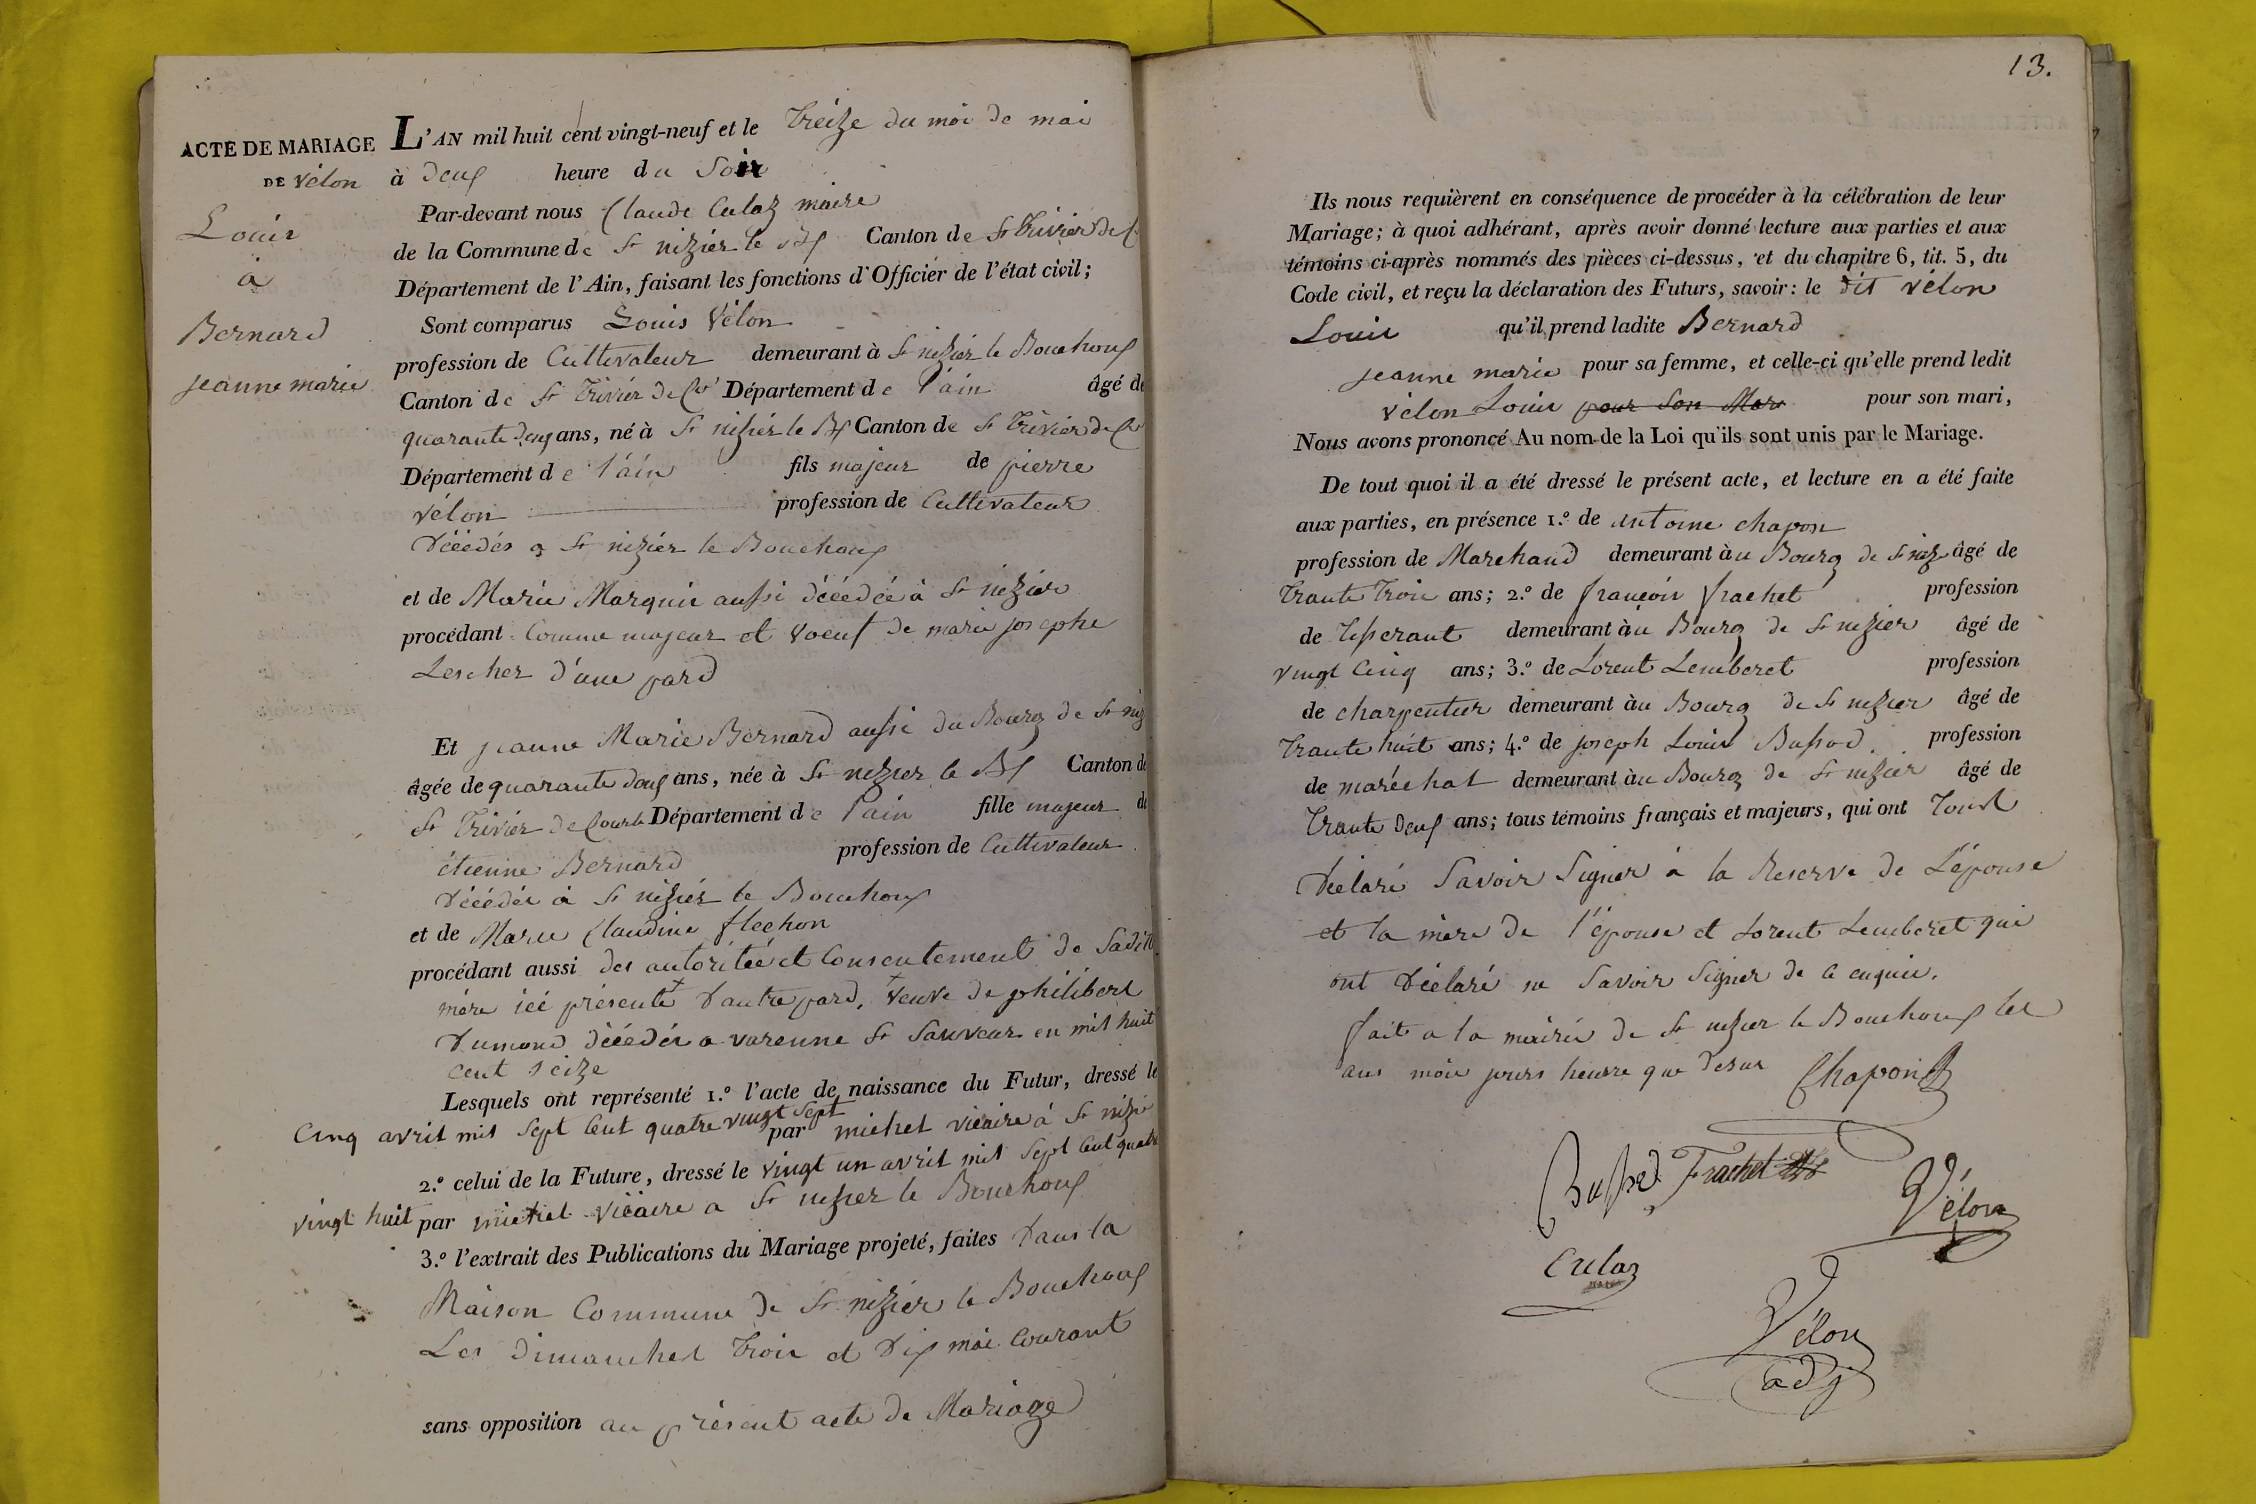 ACTE DE MARIAGE
DE vélon
Louis
à
Bernard
jeanne marie
L'AN mil huit cent vingt-neuf et le treize du moi de mai
à deux heure du Soir
Par-devant nous Claude Culaz maire
de la Commune de St nizier le Bx Canton de St trivier de C
Département de l'Ain, faisant les fonctions d'Officier de l'état civil;
Sont comparus Louis Vélon
profession de Cultivateur demeurant à St nizier le Bouchoux
Canton de St trivier de Cts Département de l'ain âgé de
quarante deux ans, né à St nizier le Bx Canton de St trivier de Cts
Département de l'ain fils majeur de pierre
vélon profession de Cultivateur
décédés a St nizier le Bouchoux
et de Marie Marguin aussi décédée à St nizier
procédant Comme majeur et voeuf de marie josephe
Lescher d'une pard
Et jeanne Marie Bernard aussi du Bourg de St niz
âgée de quarante deux ans, née à St nizier le Bx Canton de
St trivier de Courts Département de l'ain fille majeur de
étienne Bernard profession de Cultivateur
décédés à St nizier le Bouchoux
et de Marie Claudine flechon
procédant aussi des autoritée et Consentement de Sadite
mère ici présente + d'autre pard, + veuve de philibert
dumond décédés a varenne St Sauveur en mil huit
cent seize
Lesquels ont représenté 1.º l'acte de naissance du Futur, dressé le
Cinq avril mil Sept Cent quatre vingt sept par michel vicaire à St nizie
2.º celui de la Future, dressé le vingt un avril mil Sept Cent quatre
vingt huit par michel vicaire a St nizier le Bouchoux
3.º l'extrait des Publications du Mariage projeté, faites dans la
Maison Commune de St nizier le Bouchoux
Les dimanches trois et dix mai Courant
sans opposition au présent acte de Mariage
13.
Ils nous requièrent en conséquence de procéder à la célébration de leur
Mariage; à quoi adhérant, après avoir donné lecture aux parties et aux
témoins ci-après nommés des pièces ci-dessus, et du chapitre 6, tit. 5, du
Code civil, et reçu la déclaration des Futurs, savoir: le dit vélon
Louis qu'il prend ladite Bernard
jeanne marie pour sa femme, et celle-ci qu'elle prend ledit
vélon Louis pour Son Mari pour son mari,
Nous avons prononcé Au nom de la Loi qu'ils sont unis par le Mariage.
De tout quoi il a été dressé le présent acte, et lecture en a été faite
aux parties, en présence 1.º de antoine chapon
profession de Marchand demeurant àu Bourg de St niz âgé de
trante trois ans; 2.º de françois frachet profession
de tisserant demeurant àu Bourg de St nizier âgé de
vingt Cinq ans; 3.º de Lorent Lemberet profession
de charpentier demeurant àu Bourg de St nizier âgé de
trante huit ans; 4.º de joseph Louis Bussod profession
de maréchal demeurant àu Bourg de St nizier âgé de
trante deux ans; tous témoins français et majeurs, qui ont tous
déclaré Savoir Signer à la Reserve de L'épouse
et la mère de l'épouse et Lorent Lemberet qui
ont déclaré ne Savoir Signer de ce enquis.
fait a la mairie de St nizier le Bouchoux les
ans mois jours heurre que desus Chapon
Bussod Frachet
Vélon
Culaz
maire
Vélon
adj